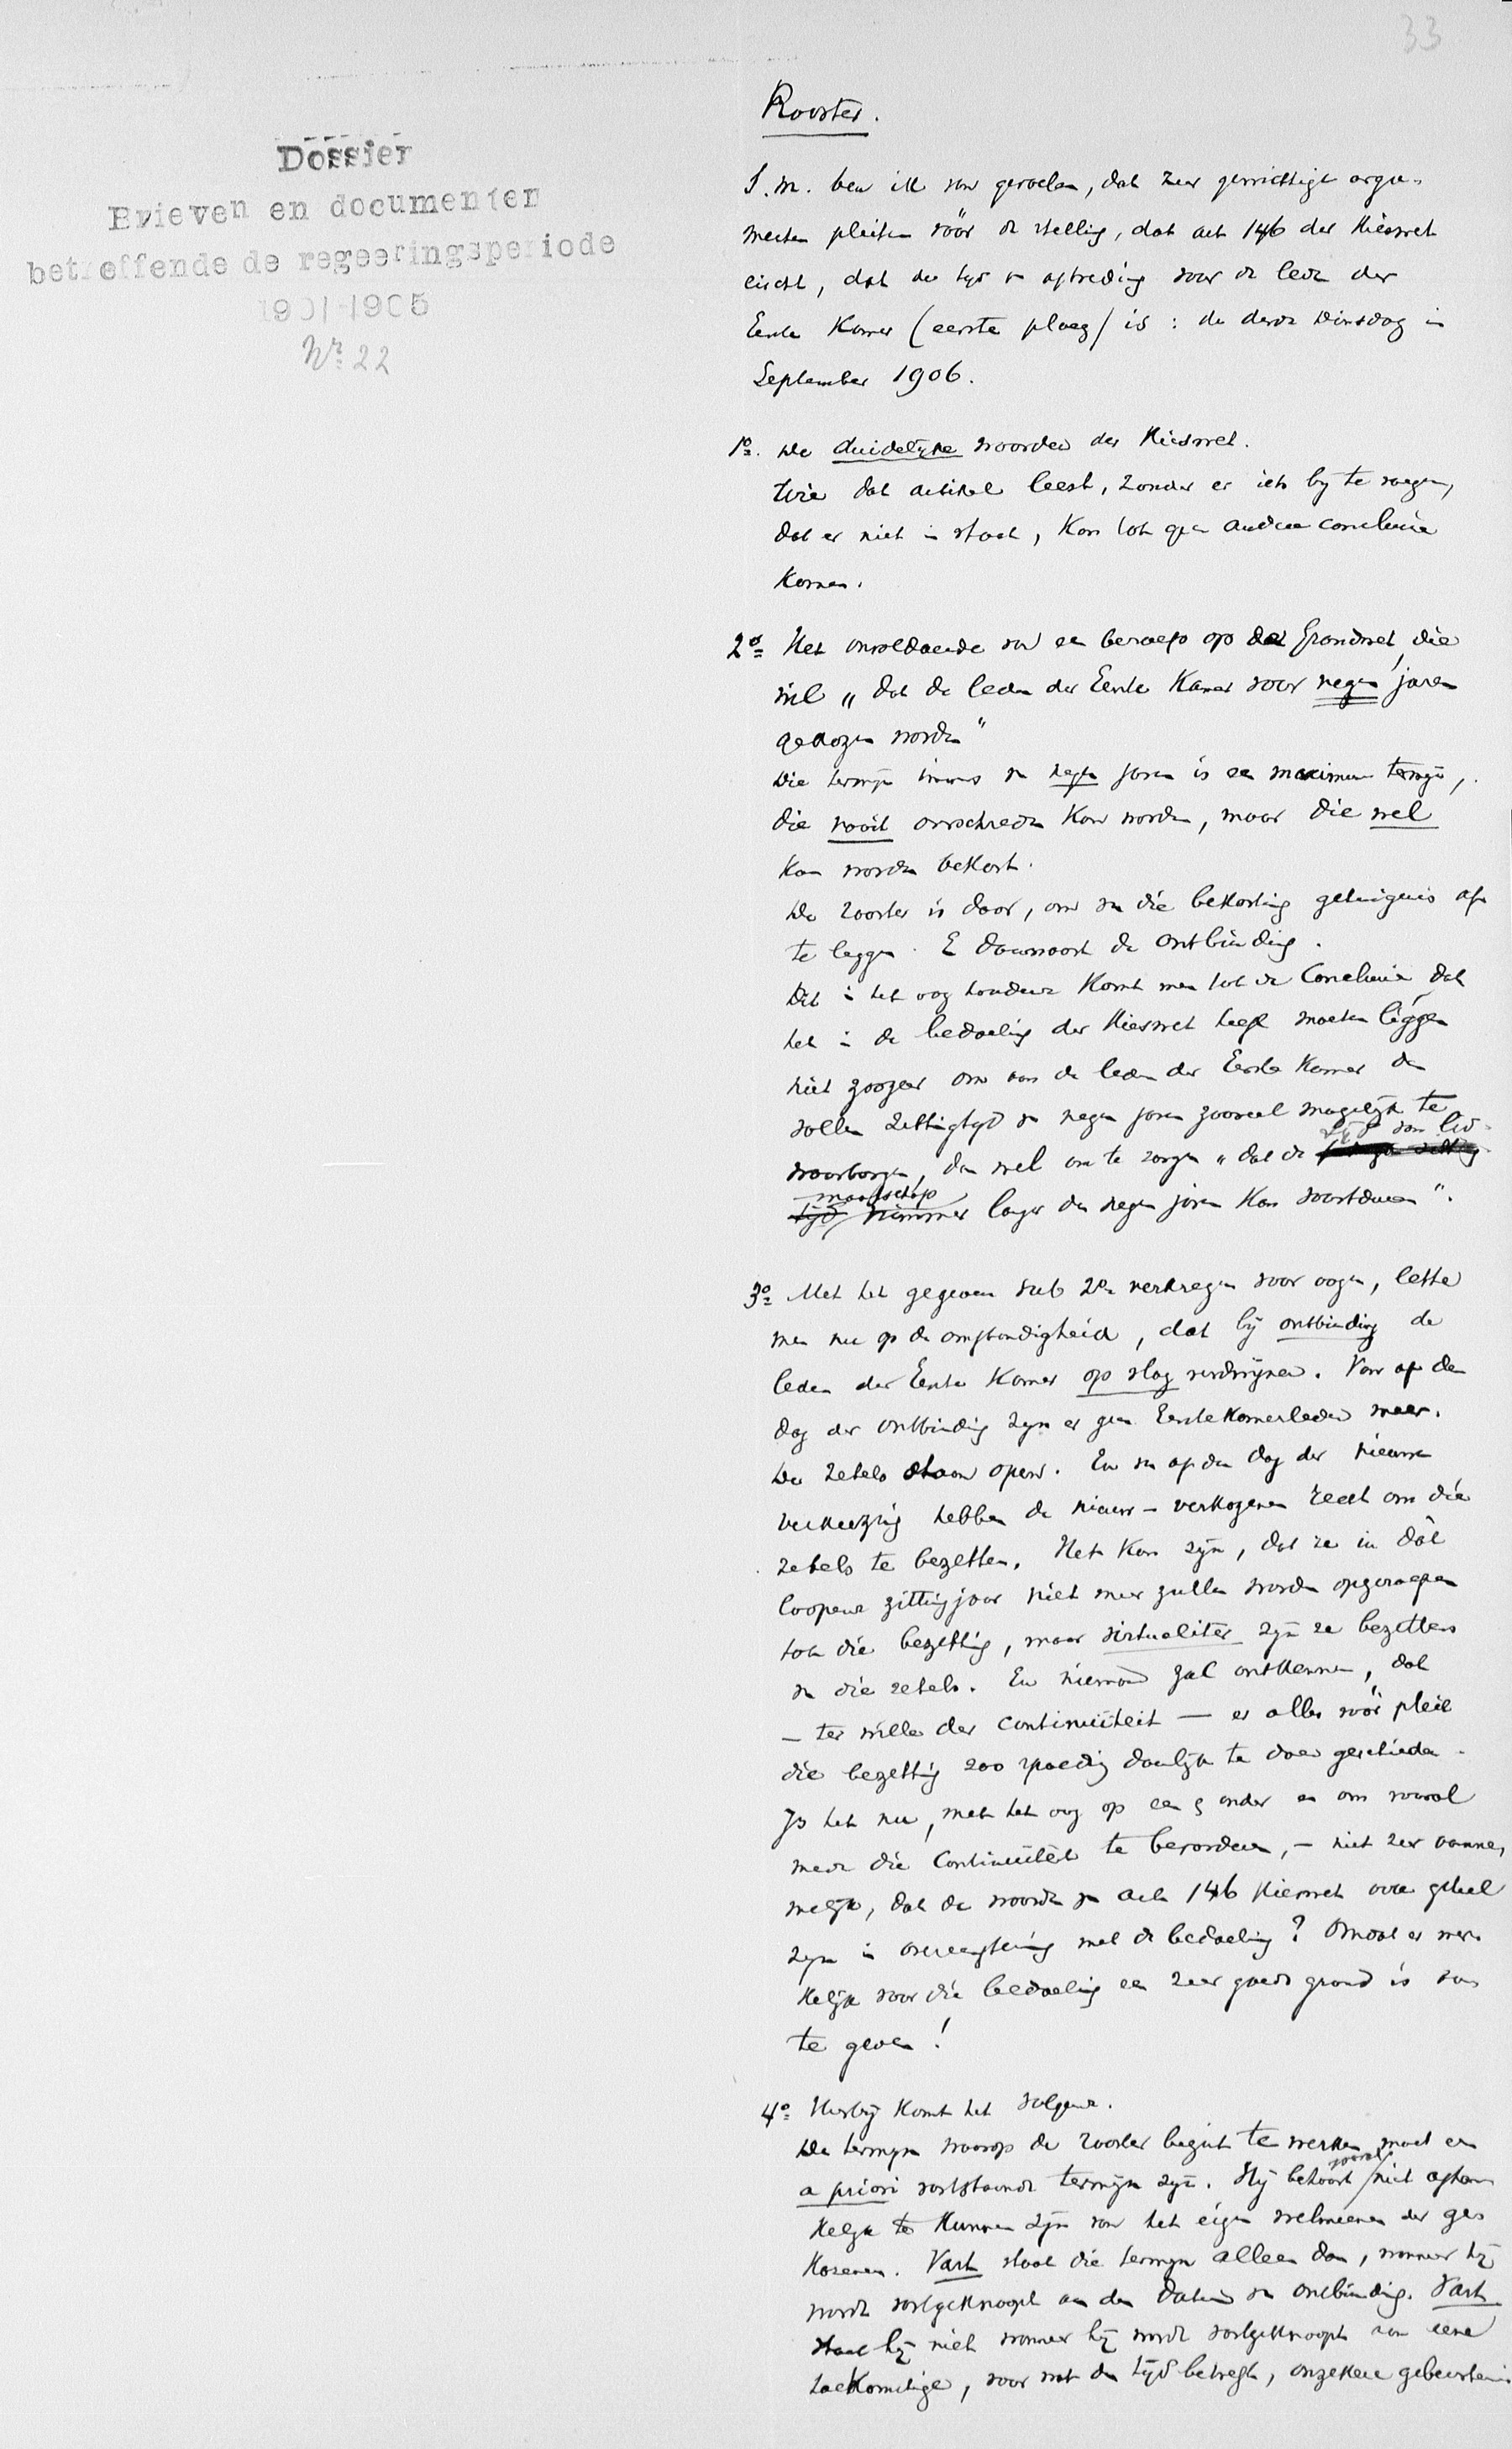 33
Dossier
Brieven en documenten
betreffende de regeeringsperiode
1901-1905
Nr. 22
Rooster.
I. m. ben ik van gevoelen, dat zeer gewichtige argu-
menten pleiten vóór de stelling, dat art 146 der Kieswet
eischt, dat de tijd v aftreding voor de leden der
Eerste Kamer (eerste ploeg) is: de derde Dinsdag in
September 1906.
1o. De duidelyke woorden der Kieswet.
Wie dat artikel leest, zonder er iets by te voegen,
dat er niet in staat, kan tot geen andere conclusie
komen.
2o Het onvoldoende van een beroep op de Grondwet, die
wil "dat de leden der Eerste Kamer voor negen jaren
gekozen worden"
Die termijn immers van negen jaren is een maximum termijn,
die nooit overschreden kan worden, maar die wel
kan worden bekort.
De rooster is daar, om van die bekorting getuigenis af
te leggen. En daarnaast de ontbinding.
Dit in het oog houdende komt men tot de conclusie dat
het in de bedoeling der Kieswet heeft moeten liggen
niet zoozeer om aan de leden der Eerste Kamer den
vollen zittingtyd van negen jaren zooveel mogelijk te
waarborgen, dan wel om te zorgen "dat de tyd van lid-
maatschap
nimmer langer dan negen jaren kan voortduren".
3o Met het gegeven sub 2o verkregen voor oogen, lette
men nu op de omstandigheid, dat bij ontbinding de
leden der Eerste Kamer op slag verdwijnen. Van af den
dag der ontbinding zyn er geen Eerstekamerleden meer.
De zetels staan open. En van af den dag der nieuwe
verkiezing hebben de nieuw-verkozenen recht om die
zetels te bezetten. Het kan zijn, dat ze in dát
loopende zittingjaar niet meer zullen worden opgeroepen
tot die bezetting, maar virtualiter zyn ze bezetters
van die zetels. En niemand zal ontkennen, dat
— ter wille der continuïteit — er alles vóór pleit
die bezetting zoo spoedig doenlijk te doen geschieden.
Is het nu, met het oog op een & ander en om vooral
mede die continuïteit te bevorderen, — niet zeer aanne-
melijk, dat de woorden van art 146 Kieswet ook geheel
zyn in overeenstemming met de bedoeling? Omdat er wer-
kelijk voor die bedoeling een zeer goede grond is aan
te geven!
4o Hierbij komt het volgende.
De termyn waarop de rooster begint te werken moet een
a priori vaststaande termijn zijn. Hij behoort vooral niet afhan
kelijk te kunnen zijn van het eigen welmeenen der ge-
kozenen. Vast staat die termyn alleen dan, wanneer hij
wordt vastgeknoopt aan den datum van ontbinding. Vast
staat hij niet wanneer hij wordt vastgeknoopt aan eene
toekomstige, voor wat den tijd betreft, onzekere gebeurtenis